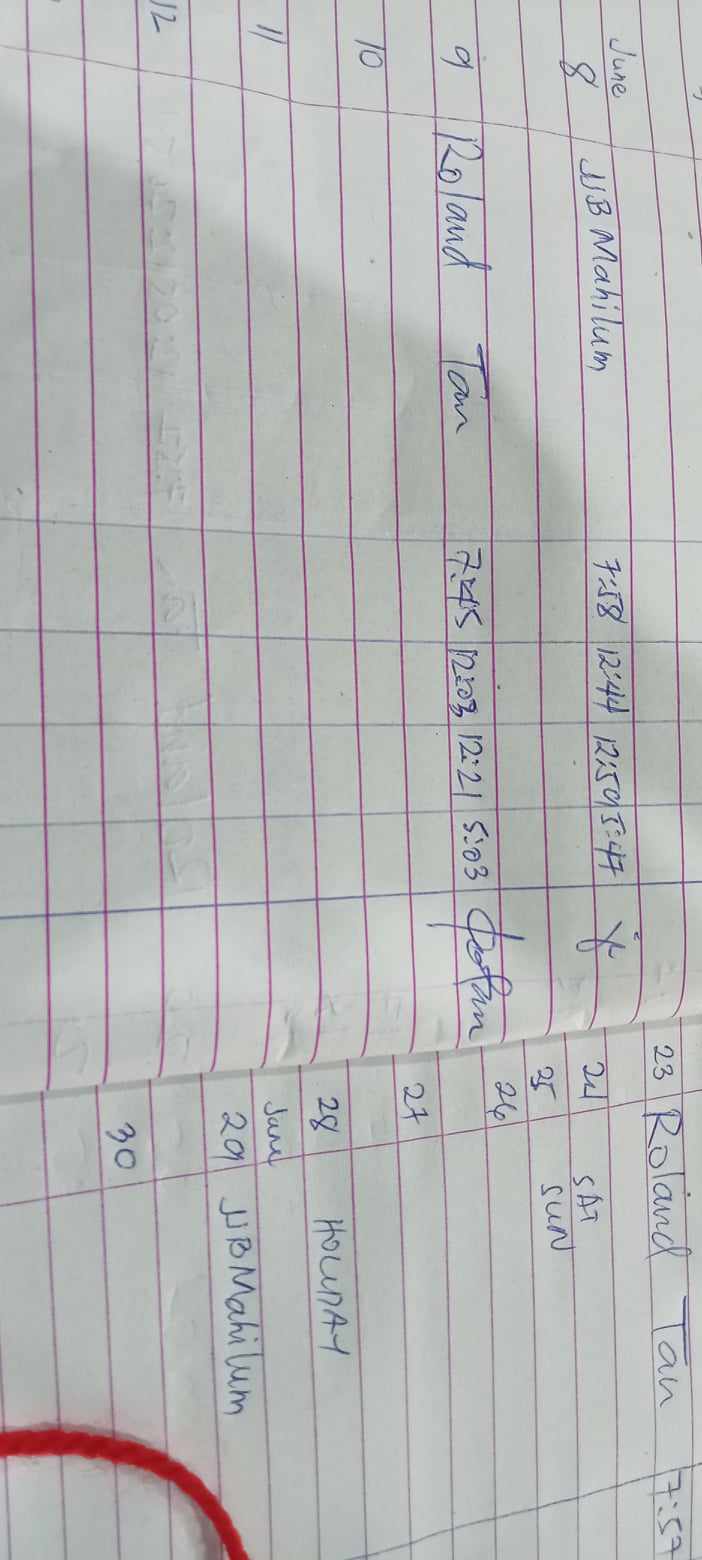 June
8 NB Mahilum 7:58 12:44 12:59 5:47
9 Roland Tan 7:45 12:03 12:21 5:03
10
11
12
23 Roland Tan 7:57
24 SAT
25 SUN
26
27
28 HOLIDAY
June
29 NB Mahilum
30